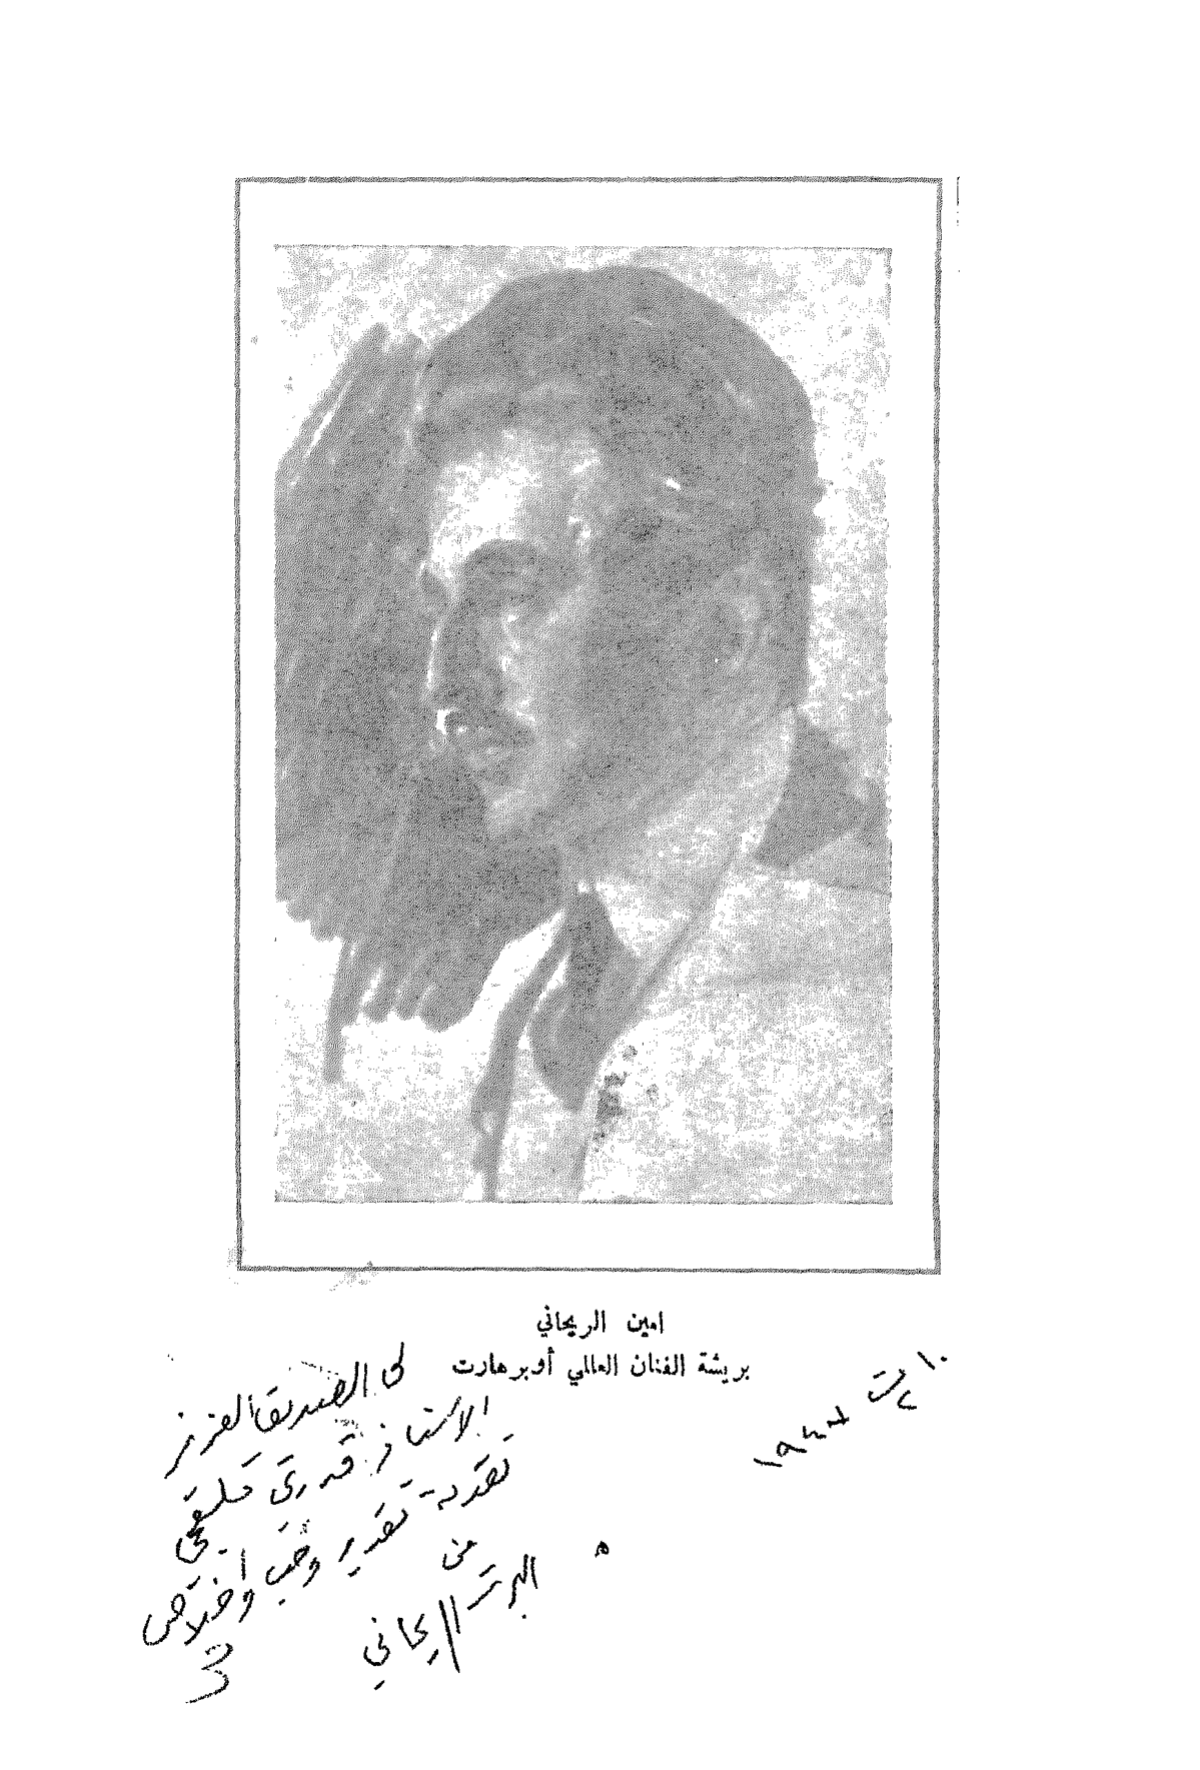 امين الريحاني
بريشة الفنان العالمي أوبرهارت
الى الصديق العزيز
الاستاذ قدري قلعجي
تقدمة تقدير وحب واخلاص
من
البرت الريحاني
١٠ ت٢ ١٩٤٧